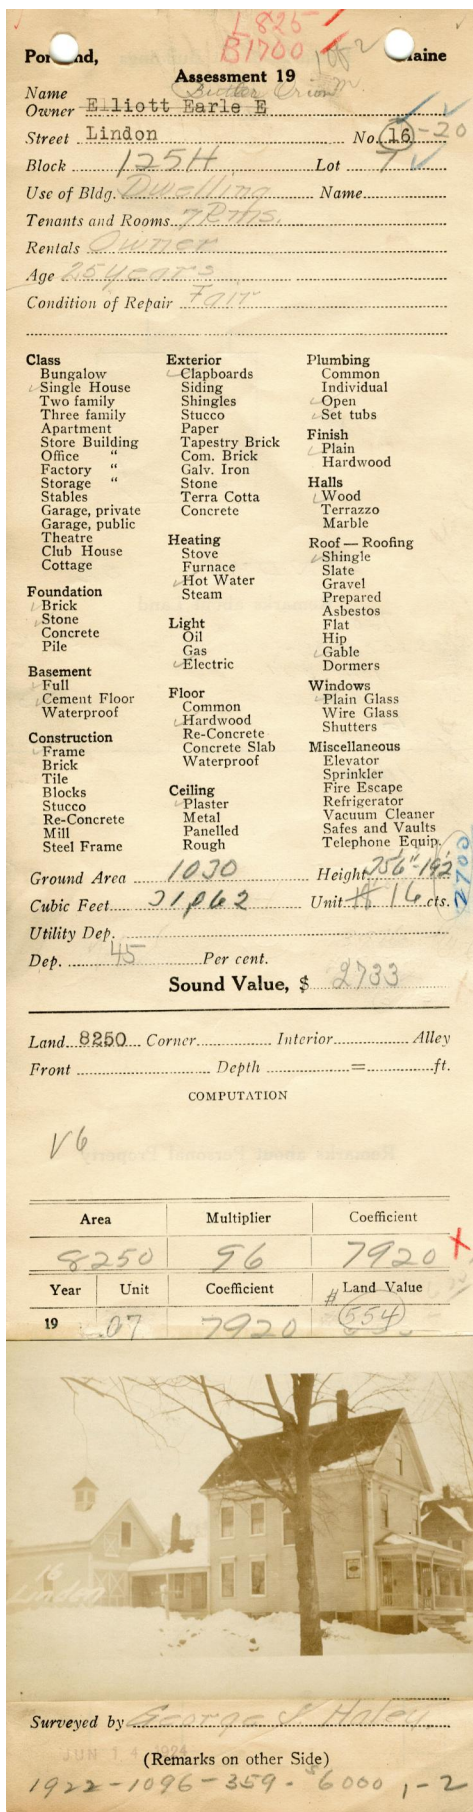 L 825
B1700
Portland, Maine
Assessment 19
Name
Butler Orion M.
Owner Elliott Earle E
Street Lindon No. 16-20
Block 125H Lot 7
Use of Bldg. Dwelling Name
Tenants and Rooms 7 Rms.
Rentals Owner
Age 25 years
Condition of Repair Fair
Class
Bungalow
Single House
Two family
Three family
Apartment
Store Building
Office "
Factory "
Storage "
Stables
Garage, private
Garage, public
Theatre
Club House
Cottage
Foundation
Brick
Stone
Concrete
Pile
Basement
Full
Cement Floor
Waterproof
Construction
Frame
Brick
Tile
Blocks
Stucco
Re-Concrete
Mill
Steel Frame
Exterior
Clapboards
Siding
Shingles
Stucco
Paper
Tapestry Brick
Com. Brick
Galv. Iron
Stone
Terra Cotta
Concrete
Heating
Stove
Furnace
Hot Water
Steam
Light
Oil
Gas
Electric
Floor
Common
Hardwood
Re-Concrete
Concrete Slab
Waterproof
Ceiling
Plaster
Metal
Panelled
Rough
Plumbing
Common
Individual
Open
Set tubs
Finish
Plain
Hardwood
Halls
Wood
Terrazzo
Marble
Roof — Roofing
Shingle
Slate
Gravel
Prepared
Asbestos
Flat
Hip
Gable
Dormers
Windows
Plain Glass
Wire Glass
Shutters
Miscellaneous
Elevator
Sprinkler
Fire Escape
Refrigerator
Vacuum Cleaner
Safes and Vaults
Telephone Equip.
Ground Area 1030 Height
Cubic Feet Unit 16 cts.
Utility Dep.
Dep. 45 Per cent.
Sound Value, $ 2733
Land 8250 Corner Interior Alley
Front Depth = ft.
COMPUTATION
V6
Area Multiplier Coefficient
8250 96 7920 X
Year Unit Coefficient Land Value
19 07 7920 # 554
16
Linden
Surveyed by George J. Haley
JUN 14 1924
(Remarks on other Side)
1922-1096-359- $6000 1-2